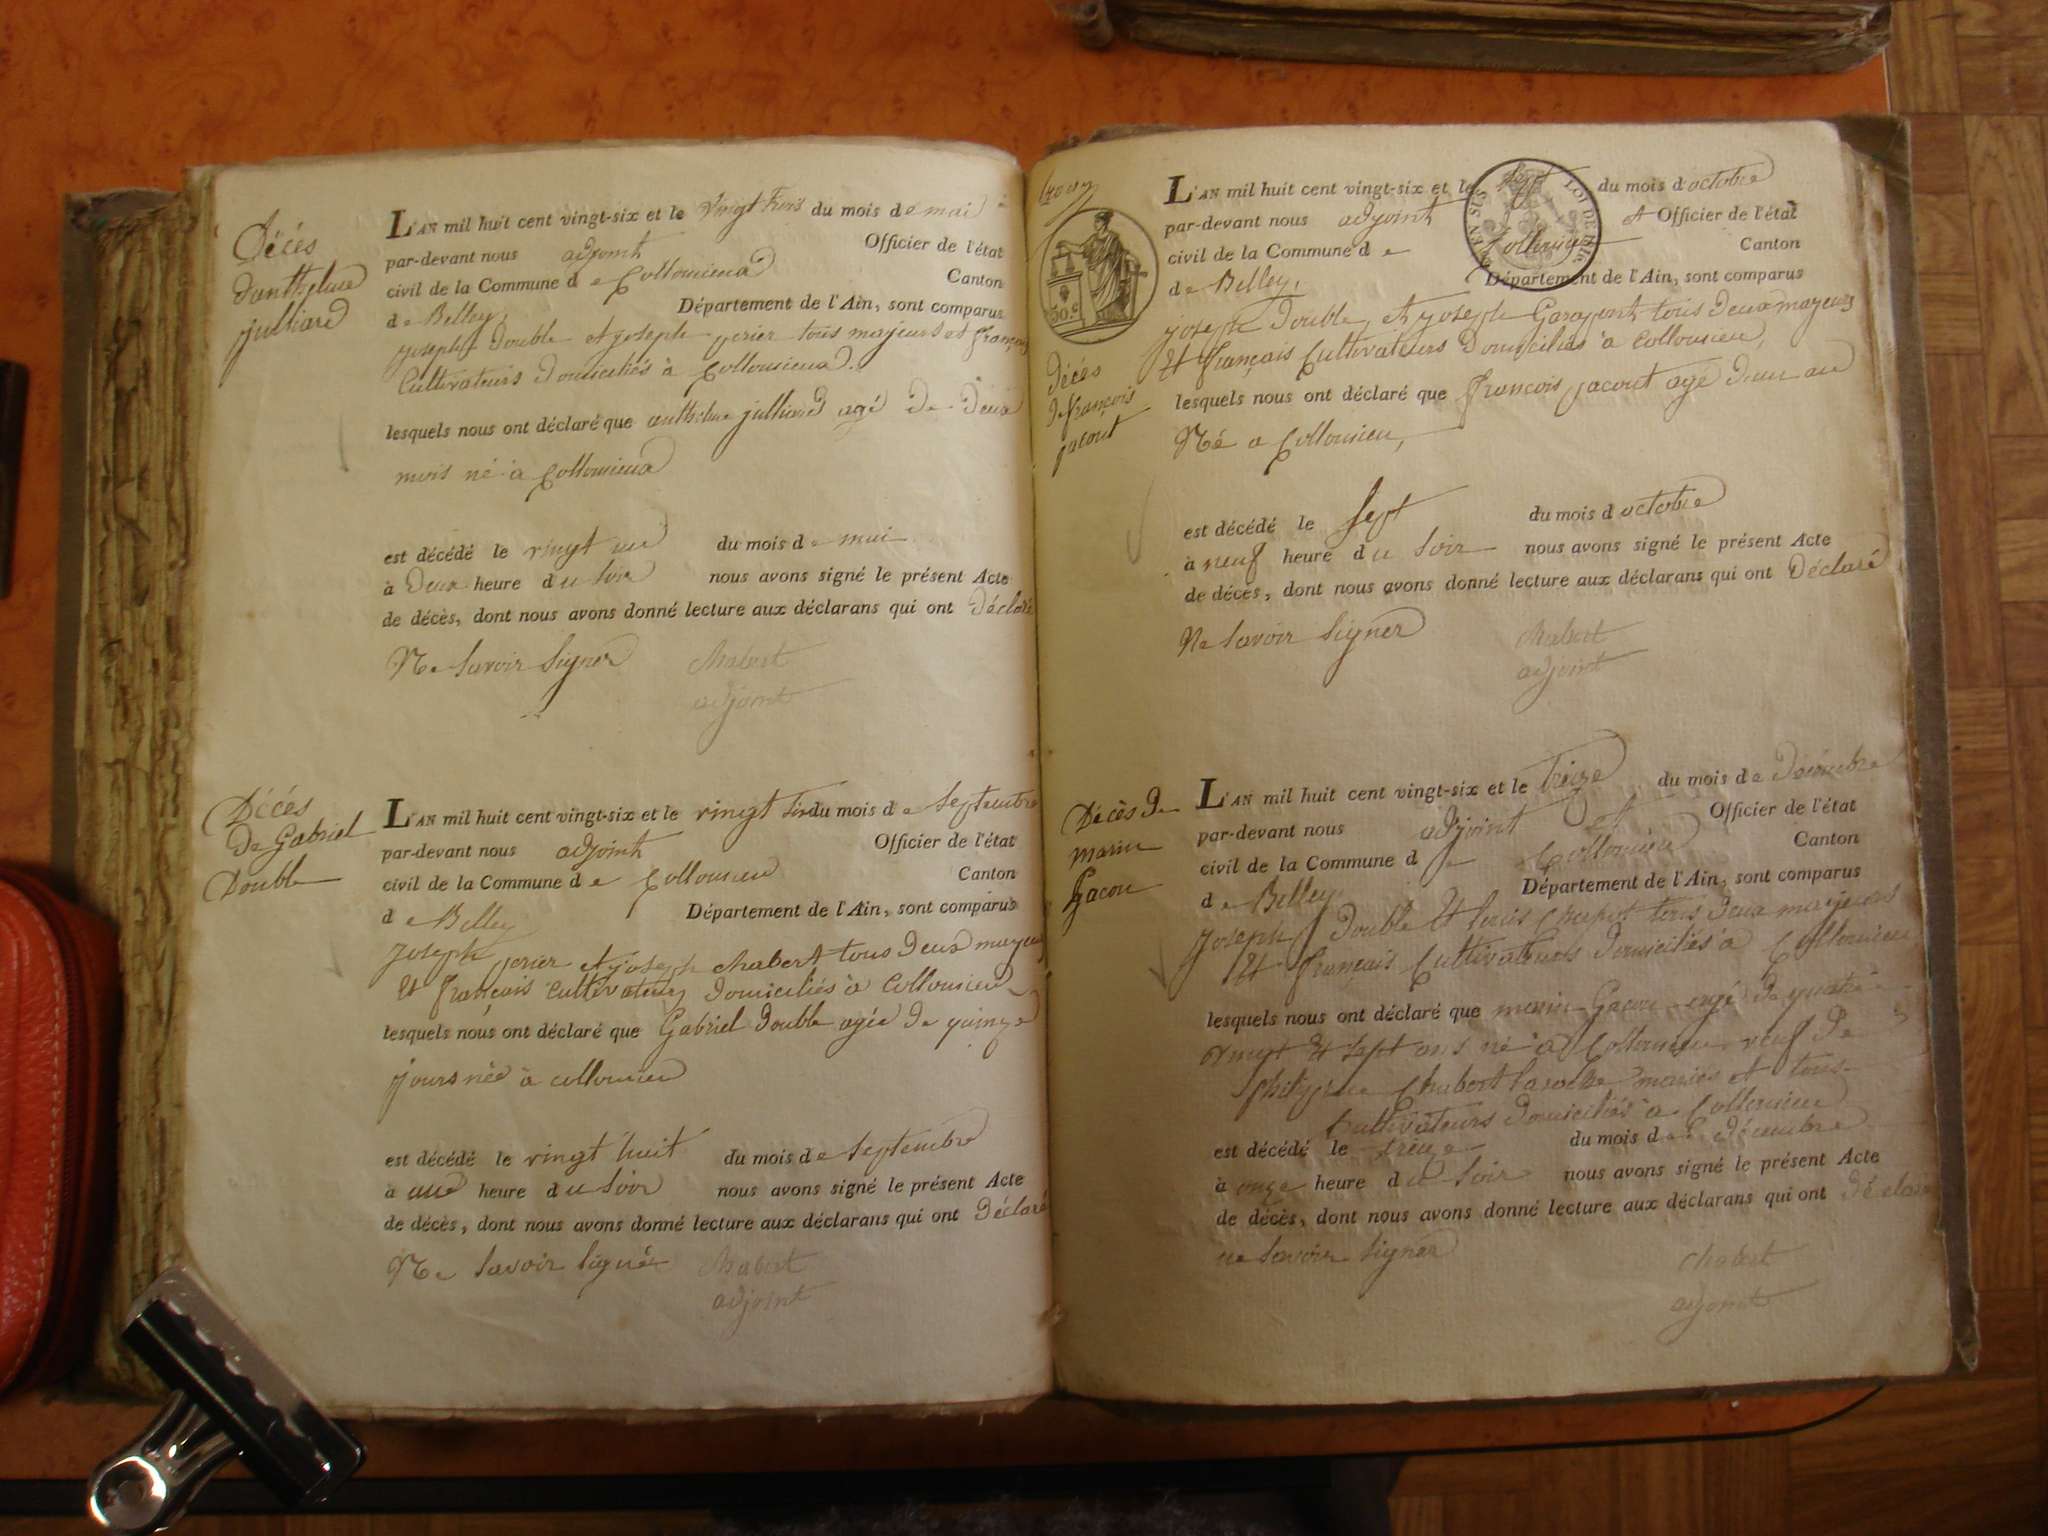 Décès
d'anthelme
julliard
L'AN mil huit cent vingt-six et le vingt trois du mois de mai
par-devant nous adjoint Officier de l'état
civil de la Commune de Collomieux Canton
de Belley, Département de l'Ain, sont comparus
joseph Double et joseph perier tous majeurs et français
Cultivateurs Domiciliés à Collomieux.
lesquels nous ont déclaré que anthelme julliard agé de deux
mois né à Collomieux
est décédé le vingt un du mois de mai
à Deux heure du soir nous avons signé le présent Acte
de décès, dont nous avons donné lecture aux déclarans qui ont Déclaré
Ne savoir signer chabert
adjoint
Décés
De Gabriel
Double
L'AN mil huit cent vingt-six et le vingt du mois de septembre
par-devant nous adjoint Officier de l'état
civil de la Commune de Collomieu Canton
de Belley Département de l'Ain, sont comparus
joseph perier et joseph chabert tous Deux majeurs
Et français cultivateurs Domiciliés à Collomieu
lesquels nous ont déclaré que Gabriel Double agée De quinze
jours née à collomieu
est décédé le vingt huit du mois de septembre
à une heure du soir nous avons signé le présent Acte
de décès, dont nous avons donné lecture aux déclarans qui ont Déclaré
Ne savoir signér chabert
adjoint
50.c
LOI DE
Décés
De françois
jacout
L'AN mil huit cent vingt-six et le sept du mois d'octobre
par-devant nous adjoint et Officier de l'état
civil de la Commune de Collomieu Canton
de Belley, Département de l'Ain, sont comparus
joseph Double, et joseph Garapont tous Deux mayeurs
Et français Cultivateurs Domiciliés à Collomieu,
lesquels nous ont déclaré que françois jacout agé D'un an
Né a Collomieu,
est décédé le sept du mois d octobre
à neuf heure du soir nous avons signé le présent Acte
de décès, dont nous avons donné lecture aux déclarans qui ont Déclaré
Ne savoir signer chabert
adjoint
Décès De
marin
Gacon
L'AN mil huit cent vingt-six et le treize du mois de Décembre
par-devant nous adjoint et Officier de l'état
civil de la Commune de Collomieu Canton
de Belley Département de l'Ain, sont comparus
joseph Double Et louis tous Deux majeurs
Et français Cultivateurs Domiciliés à Collomieu
lesquels nous ont déclaré que marin Gacon agé De quatre
vingt Et sept ans né à Collomieu veuf De
Chabert mariés et tous
Cultivateurs Domiciliés à Collomieu
est décédé le treize du mois de Décembre
à onze heure du soir nous avons signé le présent Acte
de décès, dont nous avons donné lecture aux déclarans qui ont déclaré
ne savoir signer chabert
adjoint